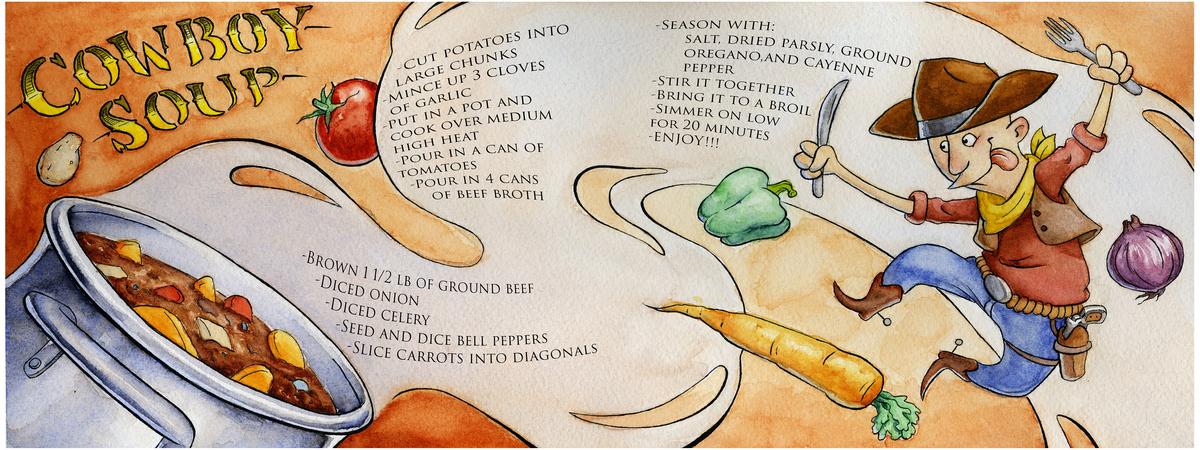 COWBOY
SOUP
-BROWN 1 1/2 LB OF GROUND BEEF
-DICED ONION
-DICED CELERY
-SEED AND DICE BELL PEPPERS
-SLICE CARROTS INTO DIAGONALS
-CUT POTATOES INTO
LARGE CHUNKS
-MINCE UP 3 CLOVES
OF GARLIC
-PUT IN A POT AND
COOK OVER MEDIUM
HIGH HEAT
-POUR IN A CAN OF
TOMATOES
-POUR IN 4 CANS
OF BEEF BROTH
-SEASON WITH:
SALT, DRIED PARSLY, GROUND
OREGANO,AND CAYENNE
PEPPER
-STIR IT TOGETHER
-BRING IT TO A BROIL
-SIMMER ON LOW
FOR 20 MINUTES
-ENJOY!!!